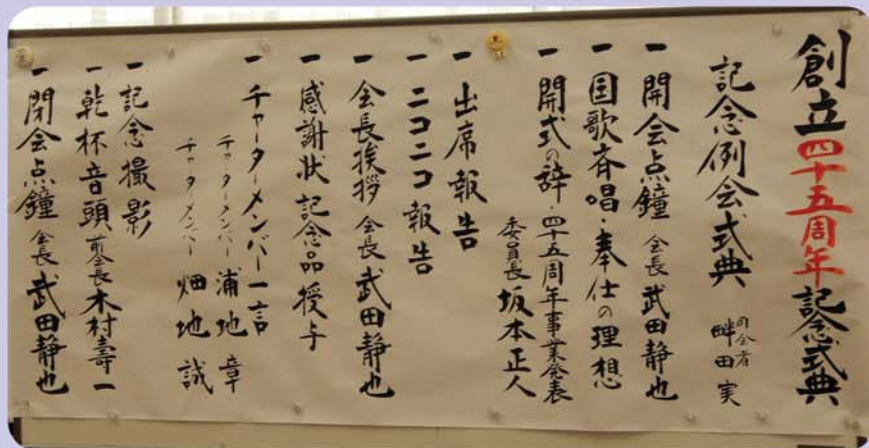 創立四十五周年記念式典
記念例会式典 司会者 畔田実
一 開会点鐘 会長 武田静也
一 国歌斉唱・奉仕の理想
一 開式の辞 四十五周年事業発表
委員長 坂本正人
一 出席報告
一 ニコニコ報告
一 会長挨拶 会長 武田静也
一 感謝状 記念品授与
一 チャーターメンバー一言
チャーターメンバー 浦地章
チャーターメンバー 畑地誠
一 記念撮影
一 乾杯音頭 前会長 木村壽一
一 閉会点鐘 会長 武田静也